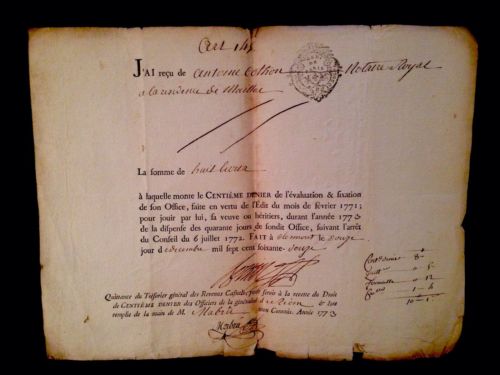 Art 145
J'AI reçu de Antoine Cothon Notaire Royal
a la residence de
La somme de huit livres
à laquelle monte le CENTIÈME DENIER de l'évaluation & fixation
de son Office, faite en vertu de l'Edit du mois de février 1771;
pour jouir par lui, sa veuve ou héritiers, durant l'année 1773
de la dispense des quarante jours de sondit Office, suivant l'arrêt
du Conseil du 6 juillet 1772. FAIT à Clermont le Douze
jour de decembre mil sept cent soixante-Douze
Quittance du Trésorier général des Revenus Casuels, pour servir à la recette du Droit
de CENTIÈME DENIER des Officiers de la généralité de Riom & être
remplie de la main de M. Mabru son Commis. Année 1773
Mabru
Cent.e denier 8
5
12
1 - 4
10 - 1